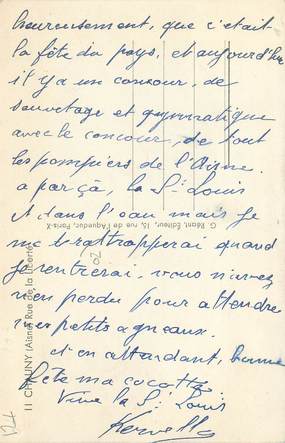 heureusement, que c'était
la fête du pays, et aujourd'hui
il y a un concour, de
sauvetage et gymnatique
avec le concour, de tout
les pompiers de l'Aisne.
a par ça, la St Louis
et dans l'eau mais je
me rattrapperai quand
je rentrerai. vous n'avez
rien perdu pour attendre
mes petits agneaux.
et en attendant, bonne
fête ma cocotte
Vive la St Louis
G. Réant, Éditeur, 15, rue de l'Aqueduc, Paris-X
11 CHAUNY (Aisne) Rue de la Liberté
02